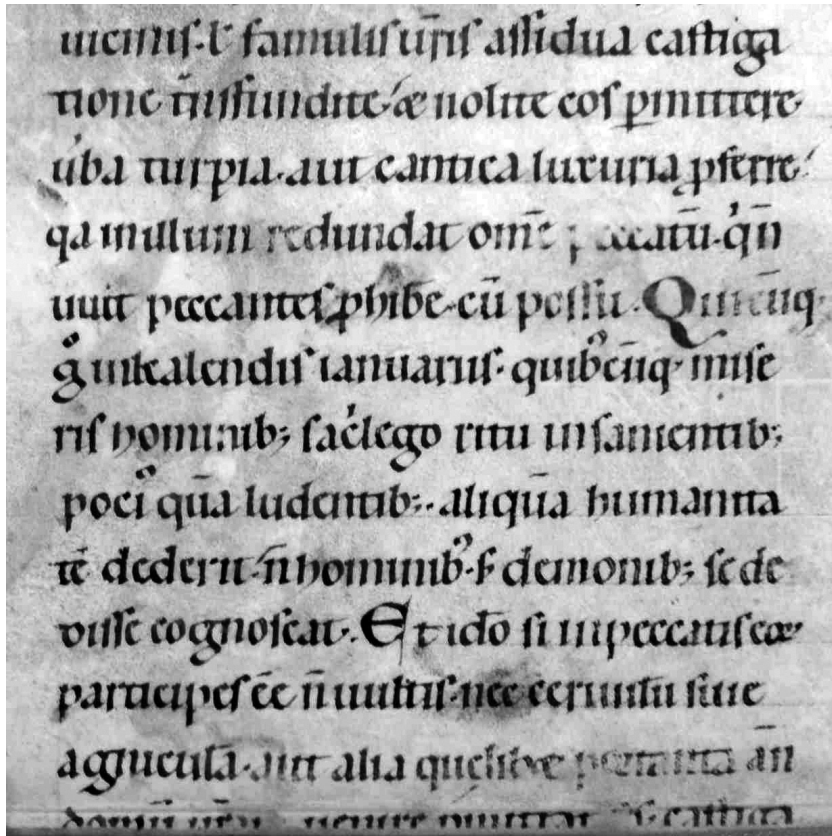 uicinis · ł famulis ur̄is assidua castiga
tione n̄ insfundite · & nolite eos p̱mittere
u͛ba turpia · aut cantica luxuria ꝓferre ·
qa in illum redundat om̄e peccatū · q̇ n̄
uult peccantes ꝓhibe͛ cū possit · Quicūq·
g̊ in kalendis ianuariis · quib͛cūq· mise
ris hominib; sac̓lego ritu insanientib;
poci͛ quā ludentib; · aliquā humanita
tē dederit · n̄ hominib͛ · s; demonib; se de
disse cognoscat · Et idō si in peccatis eoꝝ
participes ēe n̄ uultis · nec ceruulū siue
agniculā · aut alia quelibet portenta an̄